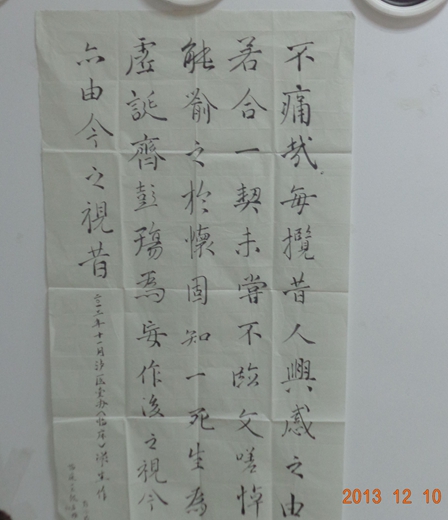 不痛哉每攬昔人興感之由
若合一契未嘗不臨文嗟悼
能喻之於懷固知一死生為
虛誕齊彭殤為妄作後之視今
亦由今之視昔
2013 12 10